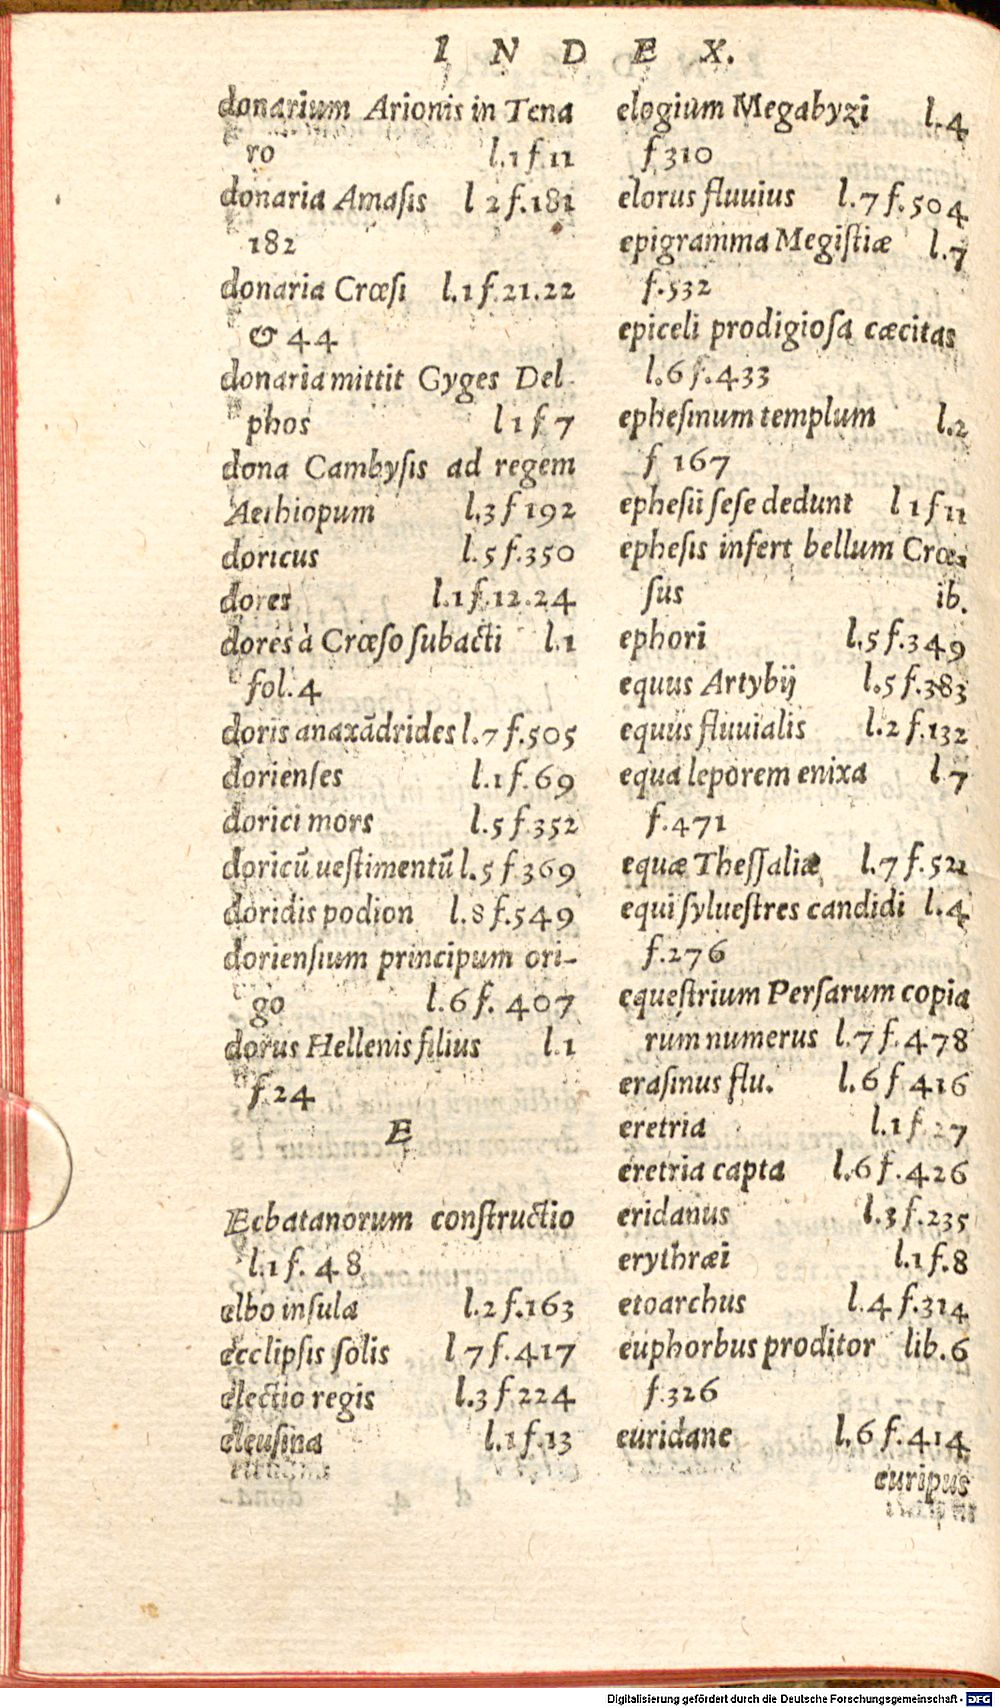 I N D E X.
donarium Arionis in Tena
ro l.1 f 11
donaria Amaſis l 2 f.181
182
donaria Crœſi l.1 f.21.22
& 44
donaria mittit Gyges Del
phos l 1 f 7
dona Cambyſis ad regem
Aethiopum l.3 f 192
doricus l.5 f.350
dores l.1 f.12.24
dores à Crœſo ſubacti l.1
fol.4
doris anaxãdrides l.7 f.505
dorienſes l.1 f.69
dorici mors l.5 f.352
doricũ ueſtimentũ l.5 f 369
doridis podion l.8 f.549
dorienſium principum ori-
go l.6 f. 407
dorus Hellenis filius l.1
f.24
E
Ecbatanorum conſtructio
l.1 f. 48
elbo inſula l.2 f.163
ecclipſis ſolis l 7 f.417
electio regis l.3 f 224
eleuſina l.1 f.13
elogium Megabyzi l.4
f 310
elorus fluuius l.7 f.504
epigramma Megiſtiæ l.7
f.532
epiceli prodigioſa cæcitas
l.6 f.433
epheſinum templum l.2
f 167
epheſii ſeſe dedunt l 1 f 11
epheſis infert bellum Crœ-
ſus ib.
ephori l.5 f.349
equus Artybij l.5 f.383
equus fluuialis l.2 f.132
equa leporem enixa l.7
f.471
equæ Theſſaliæ l.7 f.521
equi ſylueſtres candidi l.4
f.276
equeſtrium Perſarum copia
rum numerus l.7 f.478
eraſinus flu. l.6 f 416
eretria l.1 f.27
eretria capta l.6 f.426
eridanus l.3 f.235
erythræi l.1 f.8
etoarchus l.4 f.314
euphorbus proditor lib.6
f.326
euridane l.6 f.414
euripus
Digitalisierung gefördert durch die Deutsche Forschungsgemeinschaft - DFG